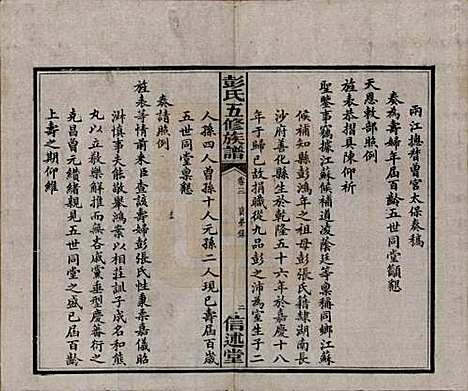 兩江總督曾宮太保奏稿
奏為壽婦年屆百齡五世同堂籲懇
天恩敕部照例
旌表恭摺具陳仰祈
聖鑒事竊據江蘇候補道凌蔭廷等稟稱同鄉江蘇
候補知縣彭鴻年之祖母彭張氏籍隸湖南長
沙府善化縣生於乾隆五十六年於嘉慶十八
年于歸已故捐職從九品彭之沛為室生子二
彭氏五修族譜
卷二
二
信述堂
人孫四人曾孫十人元孫二人現已年屆百歲
五世同堂稟懇
奏請照例
旌表等情前來臣查該壽婦彭張氏性秉柔嘉儀昭
淑慎事夫能敬舉鴻案以相莊訓子成名和熊
丸以立教樂解推而無吝戚黨垂型慶蕃衍之
克昌曾元繞緒親見五世同堂之盛已屆百齡
上壽之期仰維